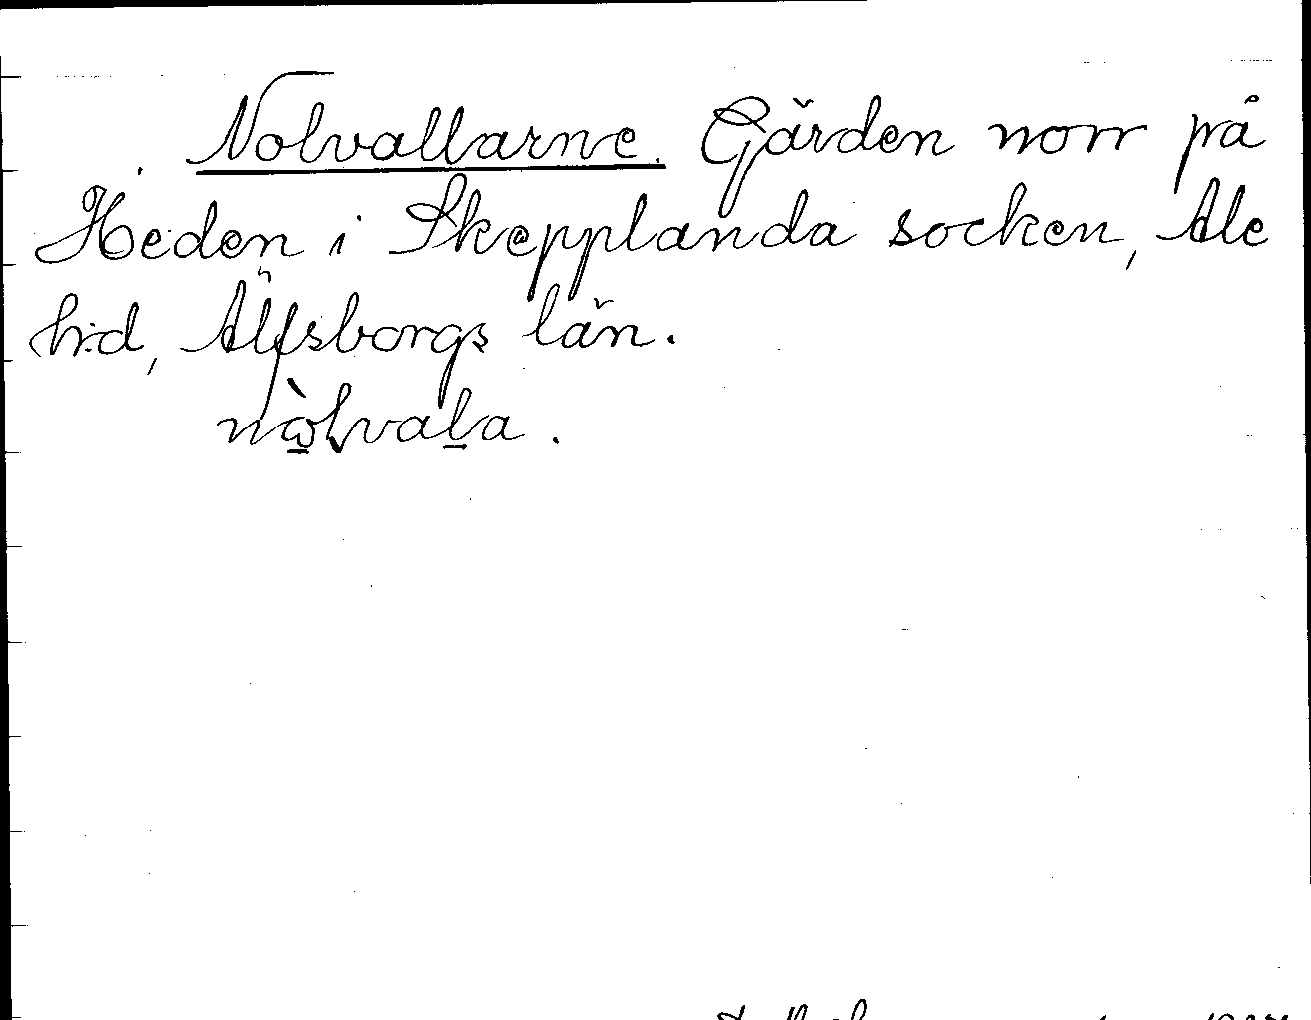 Nolvallarne. Gärden norr på
Heden i Skepplanda socken, Ale
h:d, Älfsborgs län.
nò̱lvaḻa.